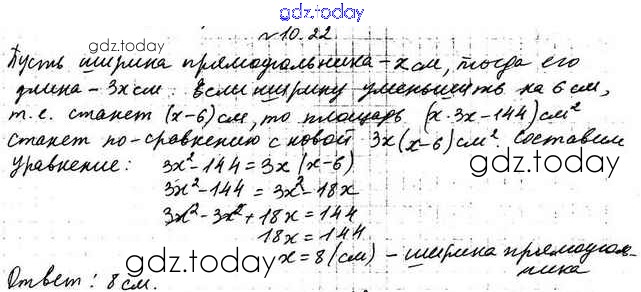 gdz.today
№10.22
Пусть ширина прямоугольника - x см, тогда его
gdz.today
длина - 3x см. Если ширину уменьшить на 6 см,
т.е. станет (x-6) см, то площадь (x·3x-144) см²
станет по-сравнению с новой 3x(x-6) см². Составим
уравнение: 3x²-144 = 3x(x-6)
gdz.today
3x²-144 = 3x²-18x
3x²-3x²+18x = 144
18x = 144
gdz.today
x = 8 (см) - ширина прямоуголь-
ника
Ответ: 8 см.